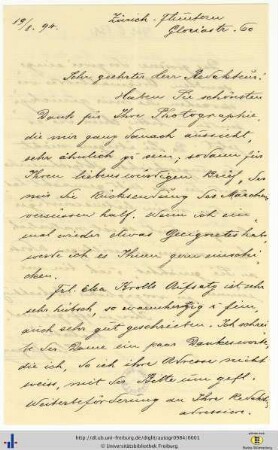 19/8. 94.
Zürich-Fluntern
Gloriastr. 60
Sehr geehrter Herr Redakteur!
Haben Sie schönsten
Dank für Ihre Photographie,
die mir ganz danach aussieht,
sehr ähnlich zu sein; sodann für
Ihren liebenswürdigen Brief, der
mir die Rücksendung des Märchens
verschmerzen half. Wenn ich ein-
mal wieder etwas Geeignetes habe,
werde ich es Ihnen gern
Frl. Elsa Aufsatz ist sehr
sehr hübsch, so warmherzig u. fein,
auch sehr gut geschrieben. Ich schreibe
der Dame ein paar Dankesworte,
die ich, da ich ihre Adresse nicht
weiss, mit der Bitte um gefl.
Weiterbeförderung an Ihre Redakt.
adressiere.
http://dl.ub.uni-freiburg.de/diglit/autogr0984/0001
© Universitätsbibliothek Freiburg